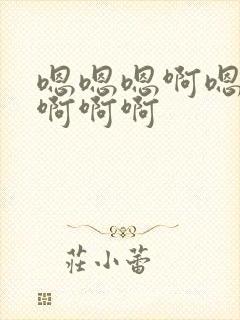 嗯嗯嗯啊嗯
啊啊啊
莊小蕾